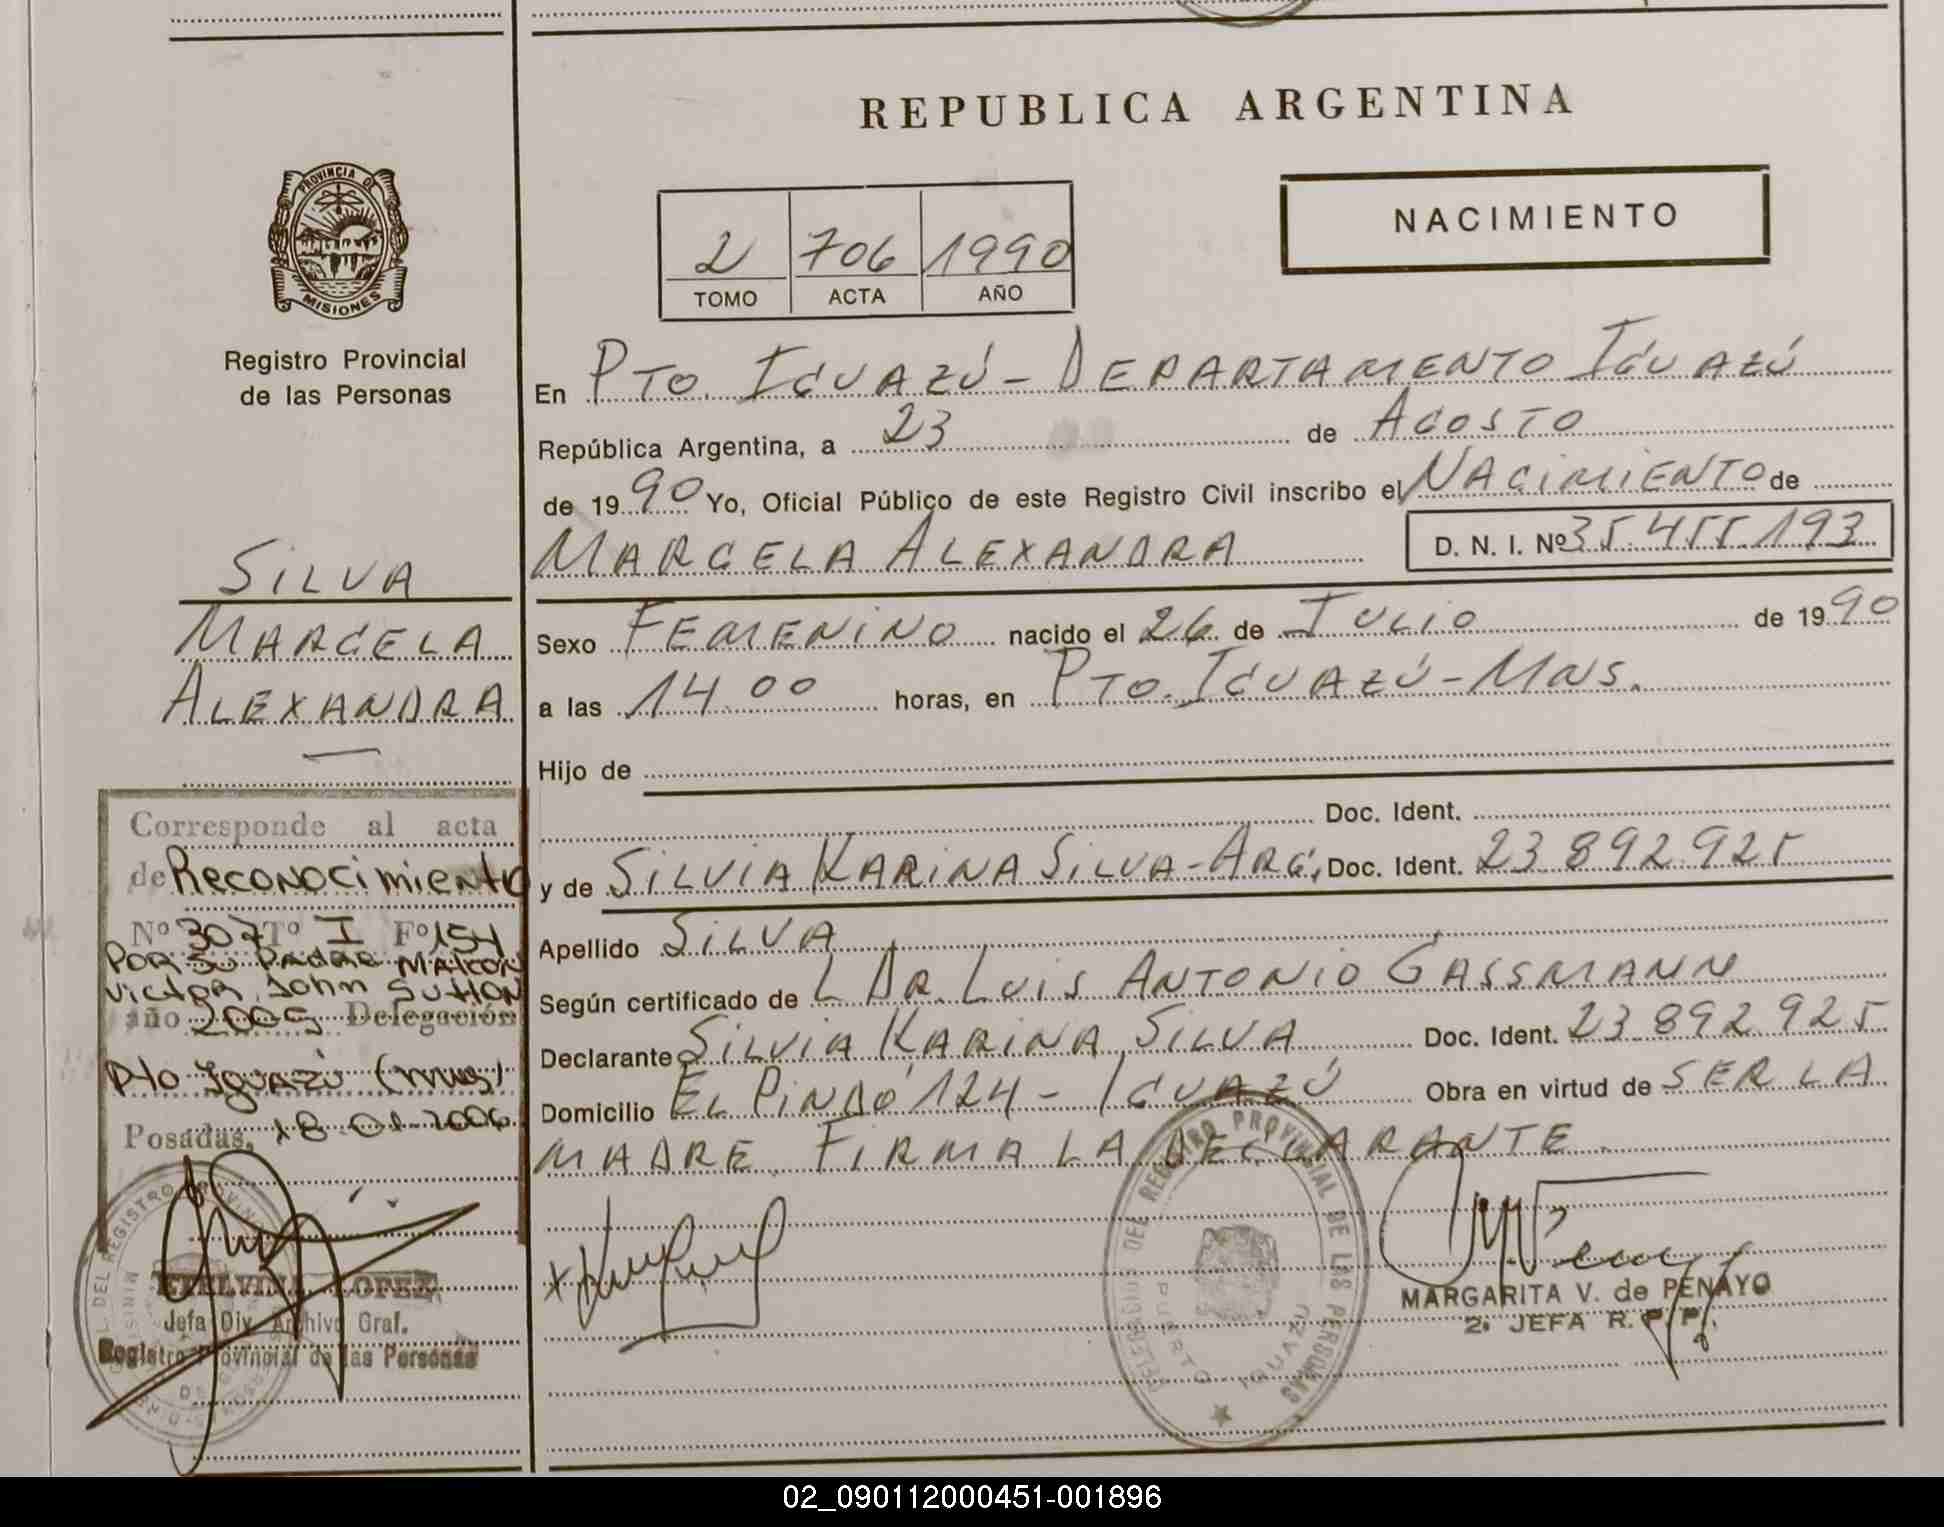 REPUBLICA ARGENTINA
NACIMIENTO
2 706 1990
TOMO ACTA AÑO
PROVINCIA DE
MISIONES
Registro Provincial
de las Personas
En PTO. IGUAZÚ - DEPARTAMENTO IGUAZÚ
República Argentina, a 23 de AGOSTO
de 1990 Yo, Oficial Público de este Registro Civil inscribo el NACIMIENTO de
MARCELA ALEXANDRA D. N. I. Nº 35.455.193
SILVA
MARCELA
ALEXANDRA
Sexo FEMENINO nacido el 26 de JULIO de 1990
a las 14 00 horas, en PTO. IGUAZÚ - MNS.
Hijo de
Doc. Ident.
y de SILVIA KARINA SILVA - ARG. Doc. Ident. 23 892 925
Apellido SILVA
Según certificado de L DR. LUIS ANTONIO GASSMANN
Declarante SILVIA KARINA SILVA Doc. Ident. 23 892 925
Domicilio EL PINDÓ 124 - IGUAZÚ Obra en virtud de SER LA
MADRE. FIRMA LA DECLARANTE.
Corresponde al acta
de Reconocimiento
Nº 307 Tº I Fº 154
POR SU PADRE MALCON
VICTOR JOHN SUTTON
año 2005 Delegación
Pto Iguazú (mns)
Posadas, 18-01-2006
LOPEZ
Jefa Div. Archivo Graf.
Registro Provincial de las Personas
DELEGACION DEL REGISTRO PROVINCIAL DE LAS PERSONAS
PUERTO IGUAZU
MARGARITA V. de PENAYO
2ª JEFA R. P. P.
02_090112000451-001896